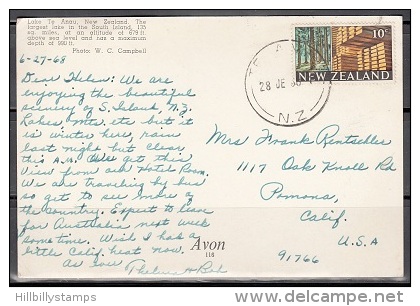 Lake Te Anau, New Zealand. The
largest lake in the South Island, 135
sq. miles, at an altitude of 679 ft.
above sea level and has a maximum
depth of 990 ft.
Photo: W. C. Campbell
6-27-68
Dear Helen: We are
enjoying the beautiful
scenery of S. Island, N.Z.
Lakes Mts. etc but it
is winter here, rain
last night but clear
this A.M. We get this
View from our Hotel Room.
We are traveling by bus
so get to see more of
the Country. Expect to leave
for Australia next week
some time. Wish I had a
little Calif. heat now.
As ever
Thelma & Bob
Avon
116
10c
NEW ZEALAND
TE ANAU
28 JE 68
N.Z
Mrs Frank Rentschler
1117 Oak Knoll Rd
Pomona,
Calif.
91766 U.S.A
Hillbillystamps
delcampe.net